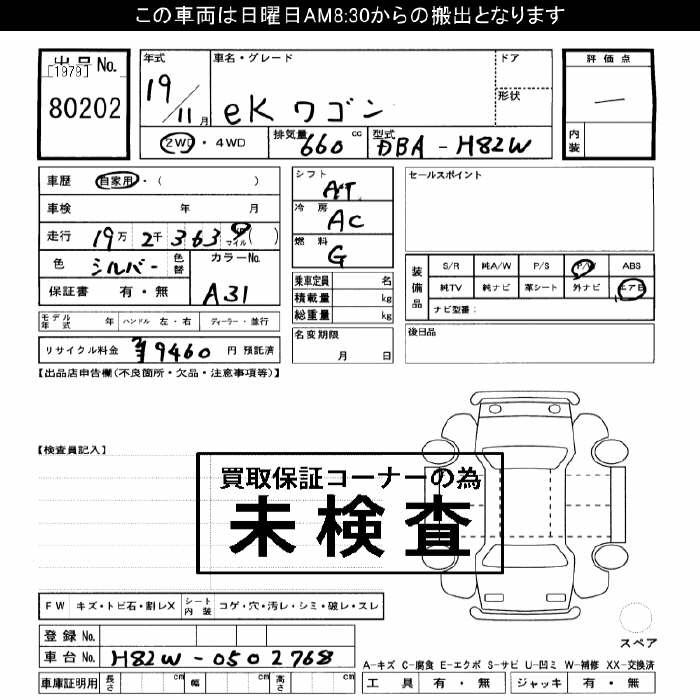 この車両は日曜日AM8:30からの搬出となります
出品No.
[1979]
80202
年式
19/11月
車名・グレード
eKワゴン
ドア
形状
評価点
—
内装
2WD・4WD
排気量 660 cc
型式 DBA-H82W
車歴 自家用・( )
車検 年 月
走行 19万 2千 363 マイル( )
色 シルバー 色替
カラーNo. A31
保証書 有・無
シフト AT
冷房 AC
燃料 G
乗車定員 名
積載量 kg
総重量 kg
名変期限 月 日
セールスポイント
装備品
S/R 純A/W P/S P/W ABS
純TV 純ナビ 革シート 外ナビ エアB
ナビ型番:
後日品
モデル年式 年 ハンドル 左・右 ディーラー・並行
リサイクル料金 ¥9460 円 預託済
【出品店申告欄(不良箇所・欠品・注意事項等)】
【検査員記入】
買取保証コーナーの為
未検査
FW キズ・トビ石・割レX シート内装 コゲ・穴・汚レ・シミ・破レ・スレ
登録No.
車台No. H82W-0502768
車庫証明用 長さ cm 幅 cm 高さ cm
スペア
A-キズ C-腐食 E-エクボ S-サビ U-凹ミ W-補修 XX-交換済
工具 有・無 ジャッキ 有・無